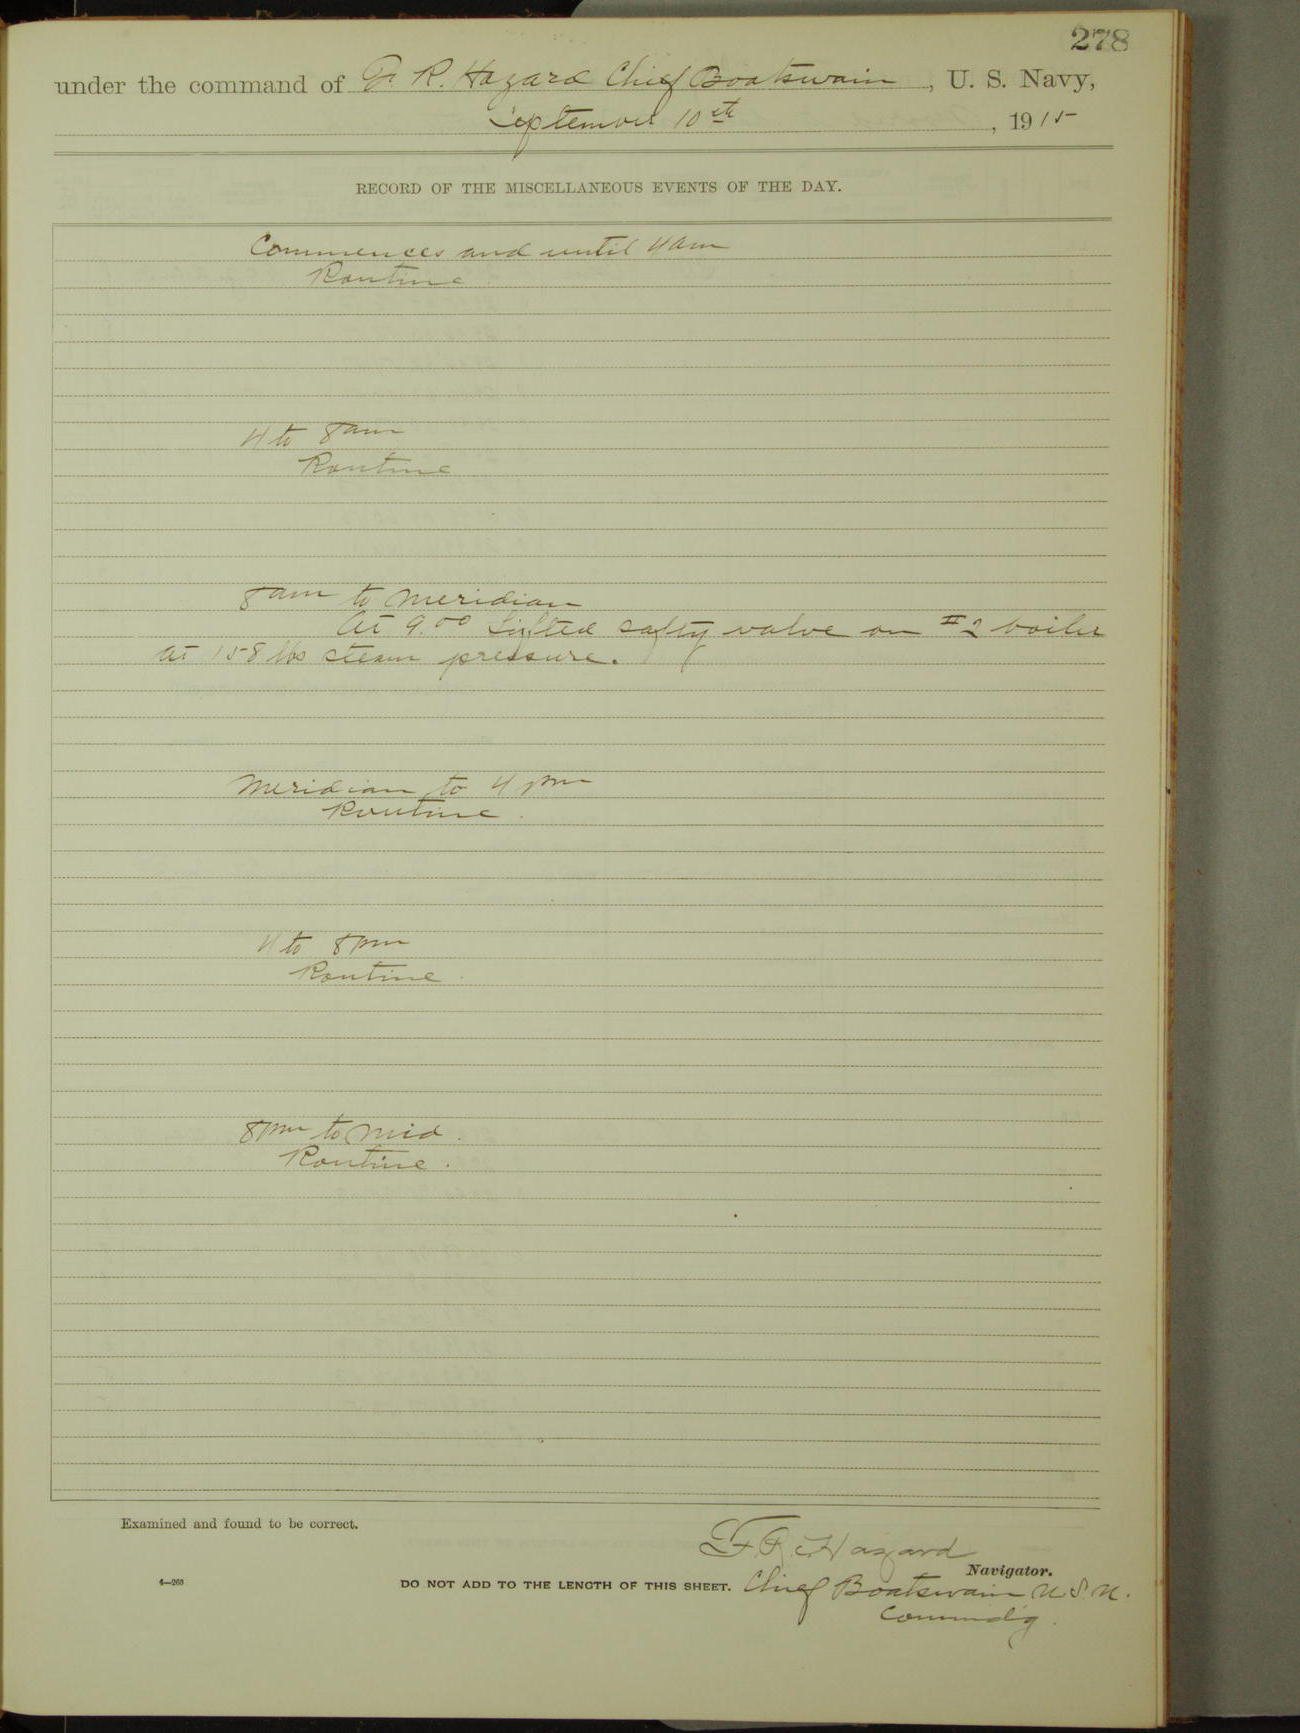 278
under the command of F. R. Hazard Chief Boatswain, U. S. Navy,
September 10th, 1915
RECORD OF THE MISCELLANEOUS EVENTS OF THE DAY.
Commences and until 4 am
Routine
4 to 8 am
Routine
8 am to Meridian
At 9.00 Lifted safty valve on #2 boiler
at 158 lbs steam pressure.
Meridian to 4 pm
Routine.
4 to 8 pm
Routine.
8 pm to Mid.
Routine.
Examined and found to be correct.
F. R. Hazard
Navigator.
4—263 DO NOT ADD TO THE LENGTH OF THIS SHEET. Chief Boatswain U.S.N.
Commdg.